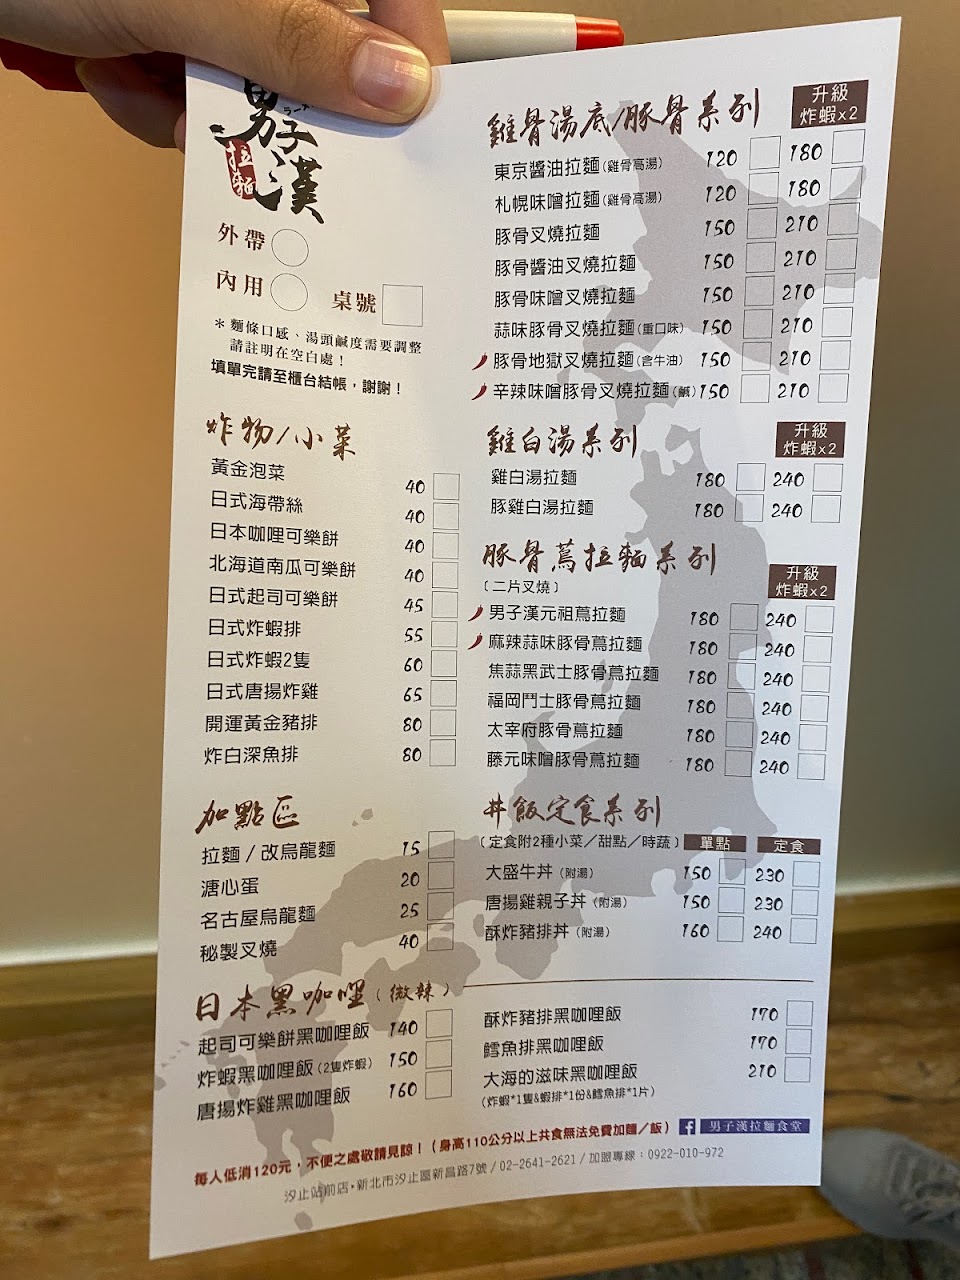 男子漢
拉麵
外帶
內用
桌號
＊麵條口感、湯頭鹹度需要調整
請註明在空白處！
填單完請至櫃台結帳，謝謝！
炸物/小菜
黃金泡菜 40
日式海帶絲 40
日本咖哩可樂餅 40
北海道南瓜可樂餅 40
日式起司可樂餅 45
日式炸蝦排 55
日式炸蝦2隻 60
日式唐揚炸雞 65
開運黃金豬排 80
炸白深魚排 80
加點區
拉麵／改烏龍麵 15
溏心蛋 20
名古屋烏龍麵 25
秘製叉燒 40
雞骨湯底/豚骨系列 升級炸蝦x2
東京醬油拉麵(雞骨高湯) 120 180
札幌味噌拉麵(雞骨高湯) 120 180
豚骨叉燒拉麵 150 210
豚骨醬油叉燒拉麵 150 210
豚骨味噌叉燒拉麵 150 210
蒜味豚骨叉燒拉麵(重口味) 150 210
豚骨地獄叉燒拉麵(含牛油) 150 210
辛辣味噌豚骨叉燒拉麵(鹹) 150 210
雞白湯系列 升級炸蝦x2
雞白湯拉麵 180 240
豚雞白湯拉麵 180 240
豚骨蔦拉麵系列 升級炸蝦x2
〔二片叉燒〕
男子漢元祖蔦拉麵 180 240
麻辣蒜味豚骨蔦拉麵 180 240
焦蒜黑武士豚骨蔦拉麵 180 240
福岡鬥士豚骨蔦拉麵 180 240
太宰府豚骨蔦拉麵 180 240
藤元味噌豚骨蔦拉麵 180 240
丼飯定食系列
〔定食附2種小菜／甜點／時蔬〕 單點 定食
大盛牛丼(附湯) 150 230
唐揚雞親子丼(附湯) 150 230
酥炸豬排丼(附湯) 160 240
日本黑咖哩(微辣)
起司可樂餅黑咖哩飯 140
炸蝦黑咖哩飯(2隻炸蝦) 150
唐揚炸雞黑咖哩飯 160
酥炸豬排黑咖哩飯 170
鱈魚排黑咖哩飯 170
大海的滋味黑咖哩飯 210
(炸蝦*1隻&蝦排*1份&鱈魚排*1片)
每人低消120元，不便之處敬請見諒！(身高110公分以上共食無法免費加麵／飯)
男子漢拉麵食堂
汐止站前店•新北市汐止區新昌路7號 / 02-2641-2621 / 加盟專線：0922-010-972